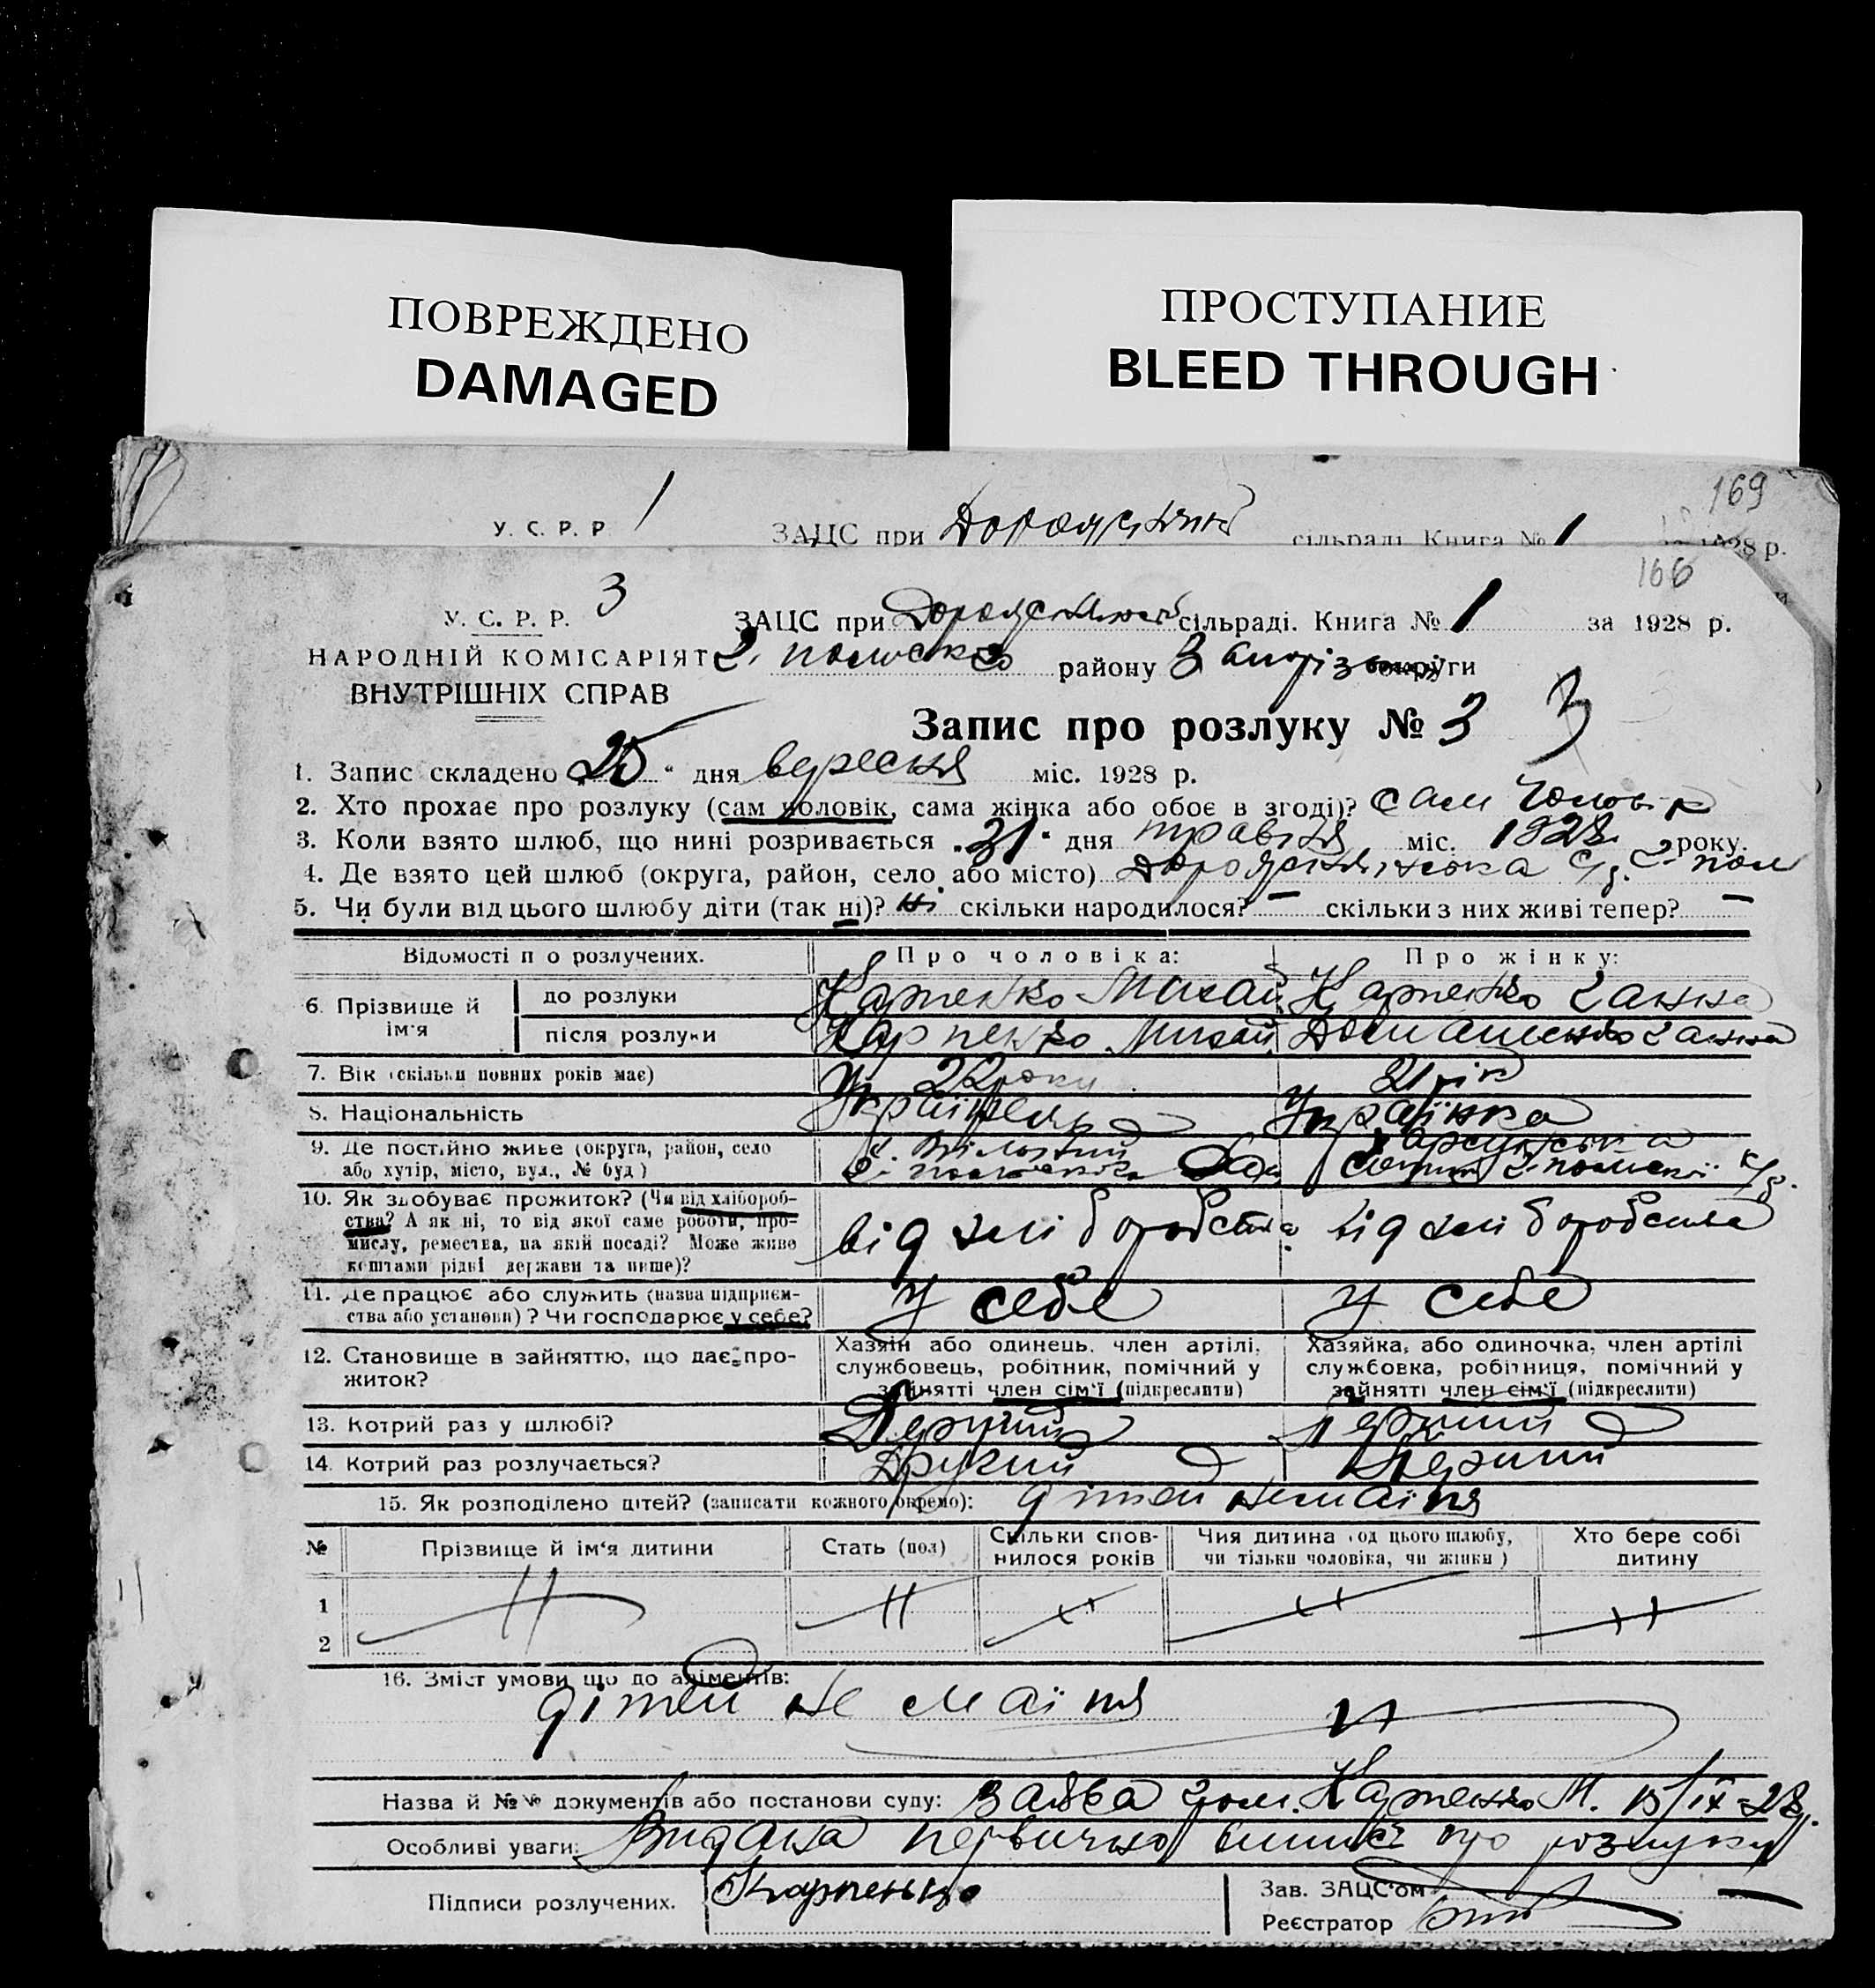 ПОВРЕЖДЕНО
DAMAGED
ПРОСТУПАНИЕ
BLEED THROUGH
169
У. С. Р. Р 1 ЗАЦС при сільраді. Книга № 1 1928 р.
166
У. С. Р. Р. 3 ЗАЦС при сільраді. Книга № 1 за 1928 р.
НАРОДНІЙ КОМІСАРІЯТ району округи
ВНУТРІШНІХ СПРАВ
Запис про розлуку № 3 3
1. Запис складено 25 " дня вересня міс. 1928 р.
2. Хто прохає про розлуку (сам чоловік, сама жінка або обоє в згоді)? сам чоловік
3. Коли взято шлюб, що нині розривається "31" дня травня міс. 1928 року.
4. Де взято цей шлюб (округа, район, село або місто)
5. Чи були від цього шлюбу діти (так ні)? ні скільки народилося? – скільки з них живі тепер? –
Відомості п о розлучених. Про чоловіка: Про жінку:
6. Прізвище й ім'я до розлуки Карпенко Михай Карпенко Ганна
після розлуки Карпенко Михай Домашенко Ганна
7. Вік (скільки повних років має) 22 роки 21 рік
8. Національність Українець Українка
9. Де постійно живе (округа, район, село
або хутір, місто, вул., № буд)
10. Як здобуває прожиток? (Чи від хлібороб-
ства? А як ні, то від якої саме роботи, про-
мислу, ремества, на якій посаді? Може живе
коштами рідні держави та инше)?
від хліборобства від хліборобства
11. Де працює або служить (назва підприєм-
ства або установи)? Чи господарює у себе?
у себе у себе
12. Становище в зайняттю, що дає про-
житок?
Хазяїн або одинець, член артілі,
службовець, робітник, помічний у
зайнятті член сім'ї (підкреслити)
Хазяйка, або одиночка, член артілі
службовка, робітниця, помічний у
зайнятті член сім'ї (підкреслити)
13. Котрий раз у шлюбі? Перший
14. Котрий раз розлучається? Другий Перший
15. Як розподілено дітей? (записати кожного окремо): дітей немаїця
№ Прізвище й ім'я дитини Стать (пол) Скільки спов-
нилося років Чия дитина (од цього шлюбу,
чи тільки чоловіка, чи жінки) Хто бере собі
дитину
1
2
16. Зміст умови що до аліментів:
дітей не маїця
Назва й №№ документів або постанови суду: заява гром. Карпенко М. 15/IX-28
Особливі уваги: Видана первична випись про розлуку
Підписи розлучених. Карпенко Зав. ЗАЦС'ом
Реєстратор